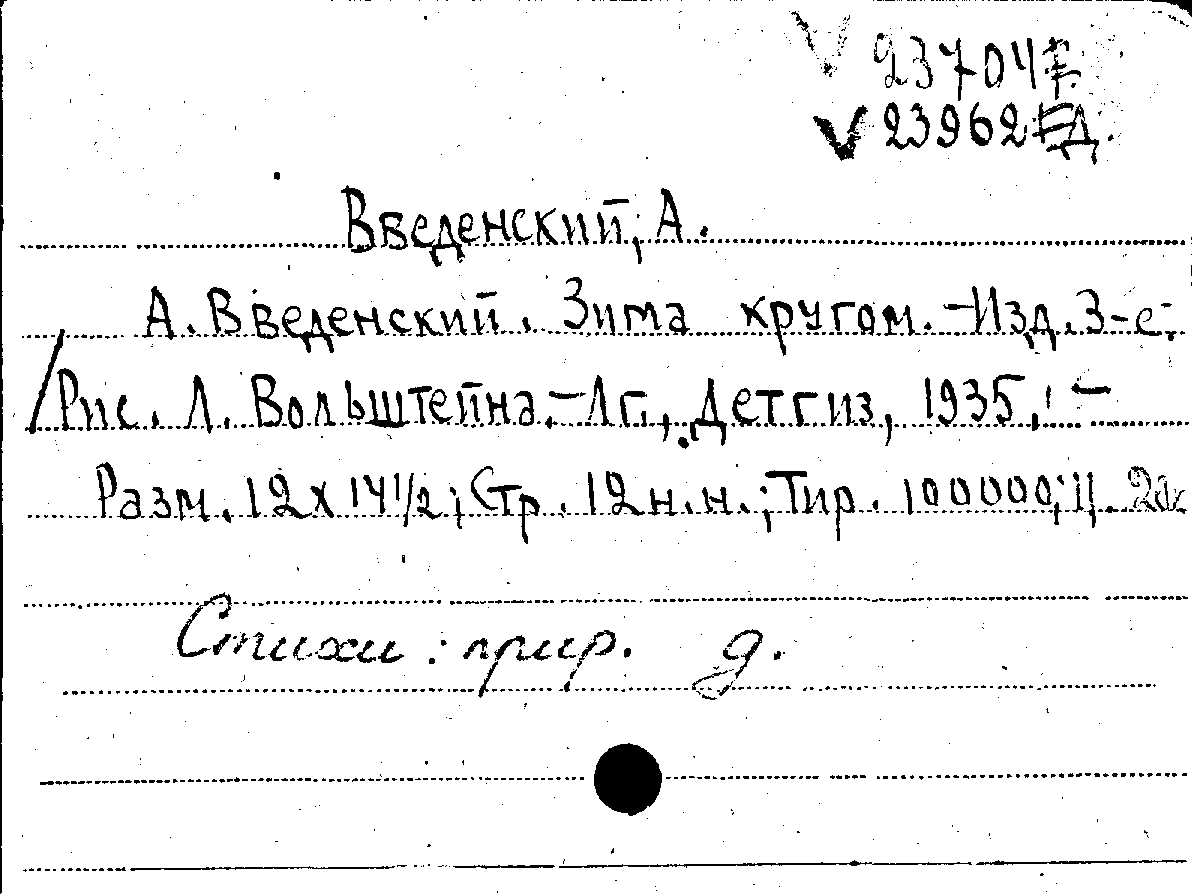 V 23704
V 23962 Д.
Введенский, А.
А. Введенский. Зима кругом. – Изд. 3-е.
Рис. Л. Вольштейна. – Лг., Детгиз, 1935, –
Разм. 12 x 14 1/2; Стр. 12 н.н.; Тир. 100000; Ц. 20к
Стихи: прир. д.